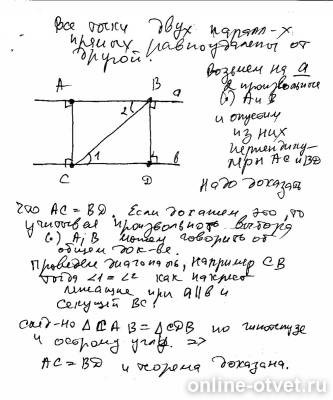 Все точки двух паралл-х
прямых равноудалены от
другой.
Возьмем на a
2 произвольные
(·) A и B
и опустим
из них
перпендику-
ляры AC и BD
Надо доказать
A B a
2
1 b
C D
что AC = BD. Если докажем это, то
учитывая произвольность выбора
(·) A, B можем говорить об
общем док-ве.
Проведем диагональ, например CB
тогда ∠1 = ∠2 как накрест
лежащие при a||b и
секущей BC.
след-но Δ CAB = Δ CDB по гипотенузе
и острому углу. =>
AC = BD и теорема доказана.
online-otvet.ru